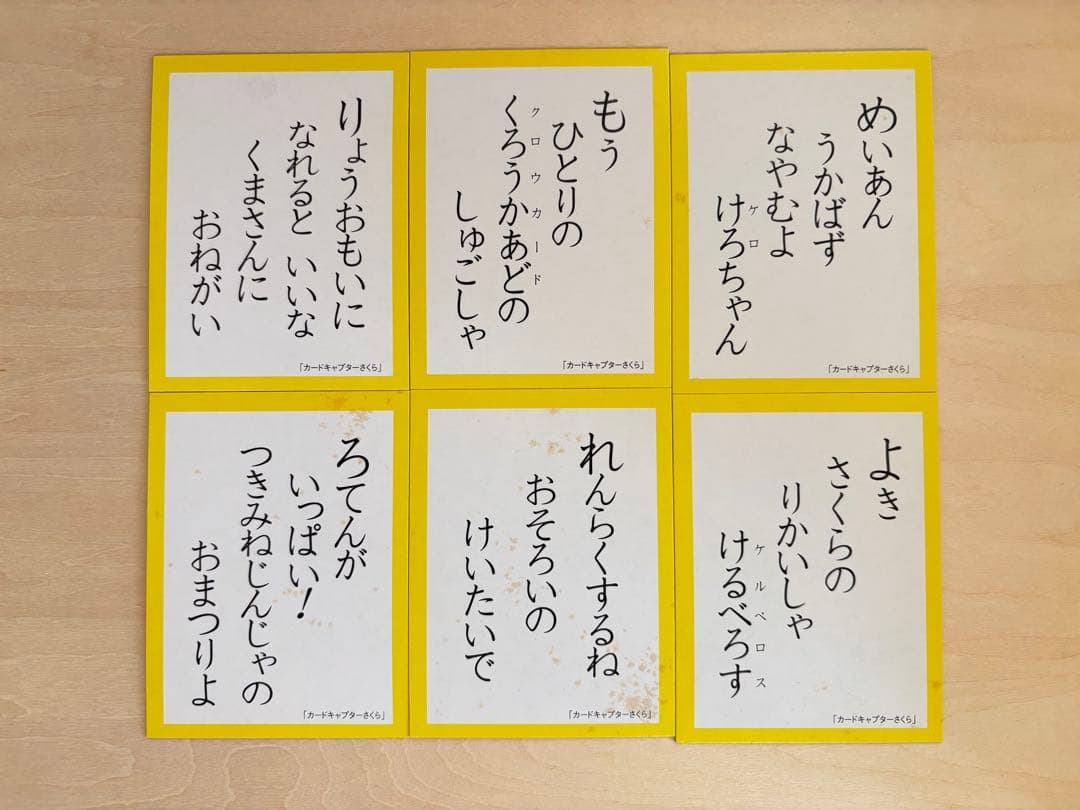 めいあん
うかばず
なやむよ
けろちゃん
ケロ
「カードキャプターさくら」
もう
ひとりの
くろうかあどの
クロウカード
しゅごしゃ
「カードキャプターさくら」
りょうおもいに
なれると いいな
くまさんに
おねがい
「カードキャプターさくら」
よき
さくらの
りかいしゃ
けるべろす
ケルベロス
「カードキャプターさくら」
れんらくするね
おそろいの
けいたいで
「カードキャプターさくら」
ろてんが
いっぱい!
つきみねじんじゃの
おまつりよ
「カードキャプターさくら」